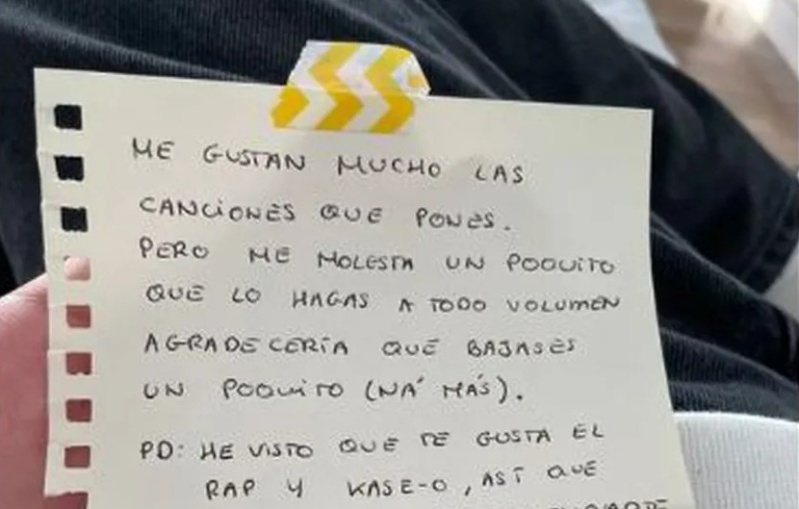 ME GUSTAN MUCHO LAS
CANCIONES QUE PONES.
PERO ME MOLESTA UN POQUITO
QUE LO HAGAS A TODO VOLUMEN
AGRADECERÍA QUE BAJASES
UN POQUITO (NÁ MÁS).
PD: HE VISTO QUE TE GUSTA EL
RAP Y KASE-O, ASÍ QUE